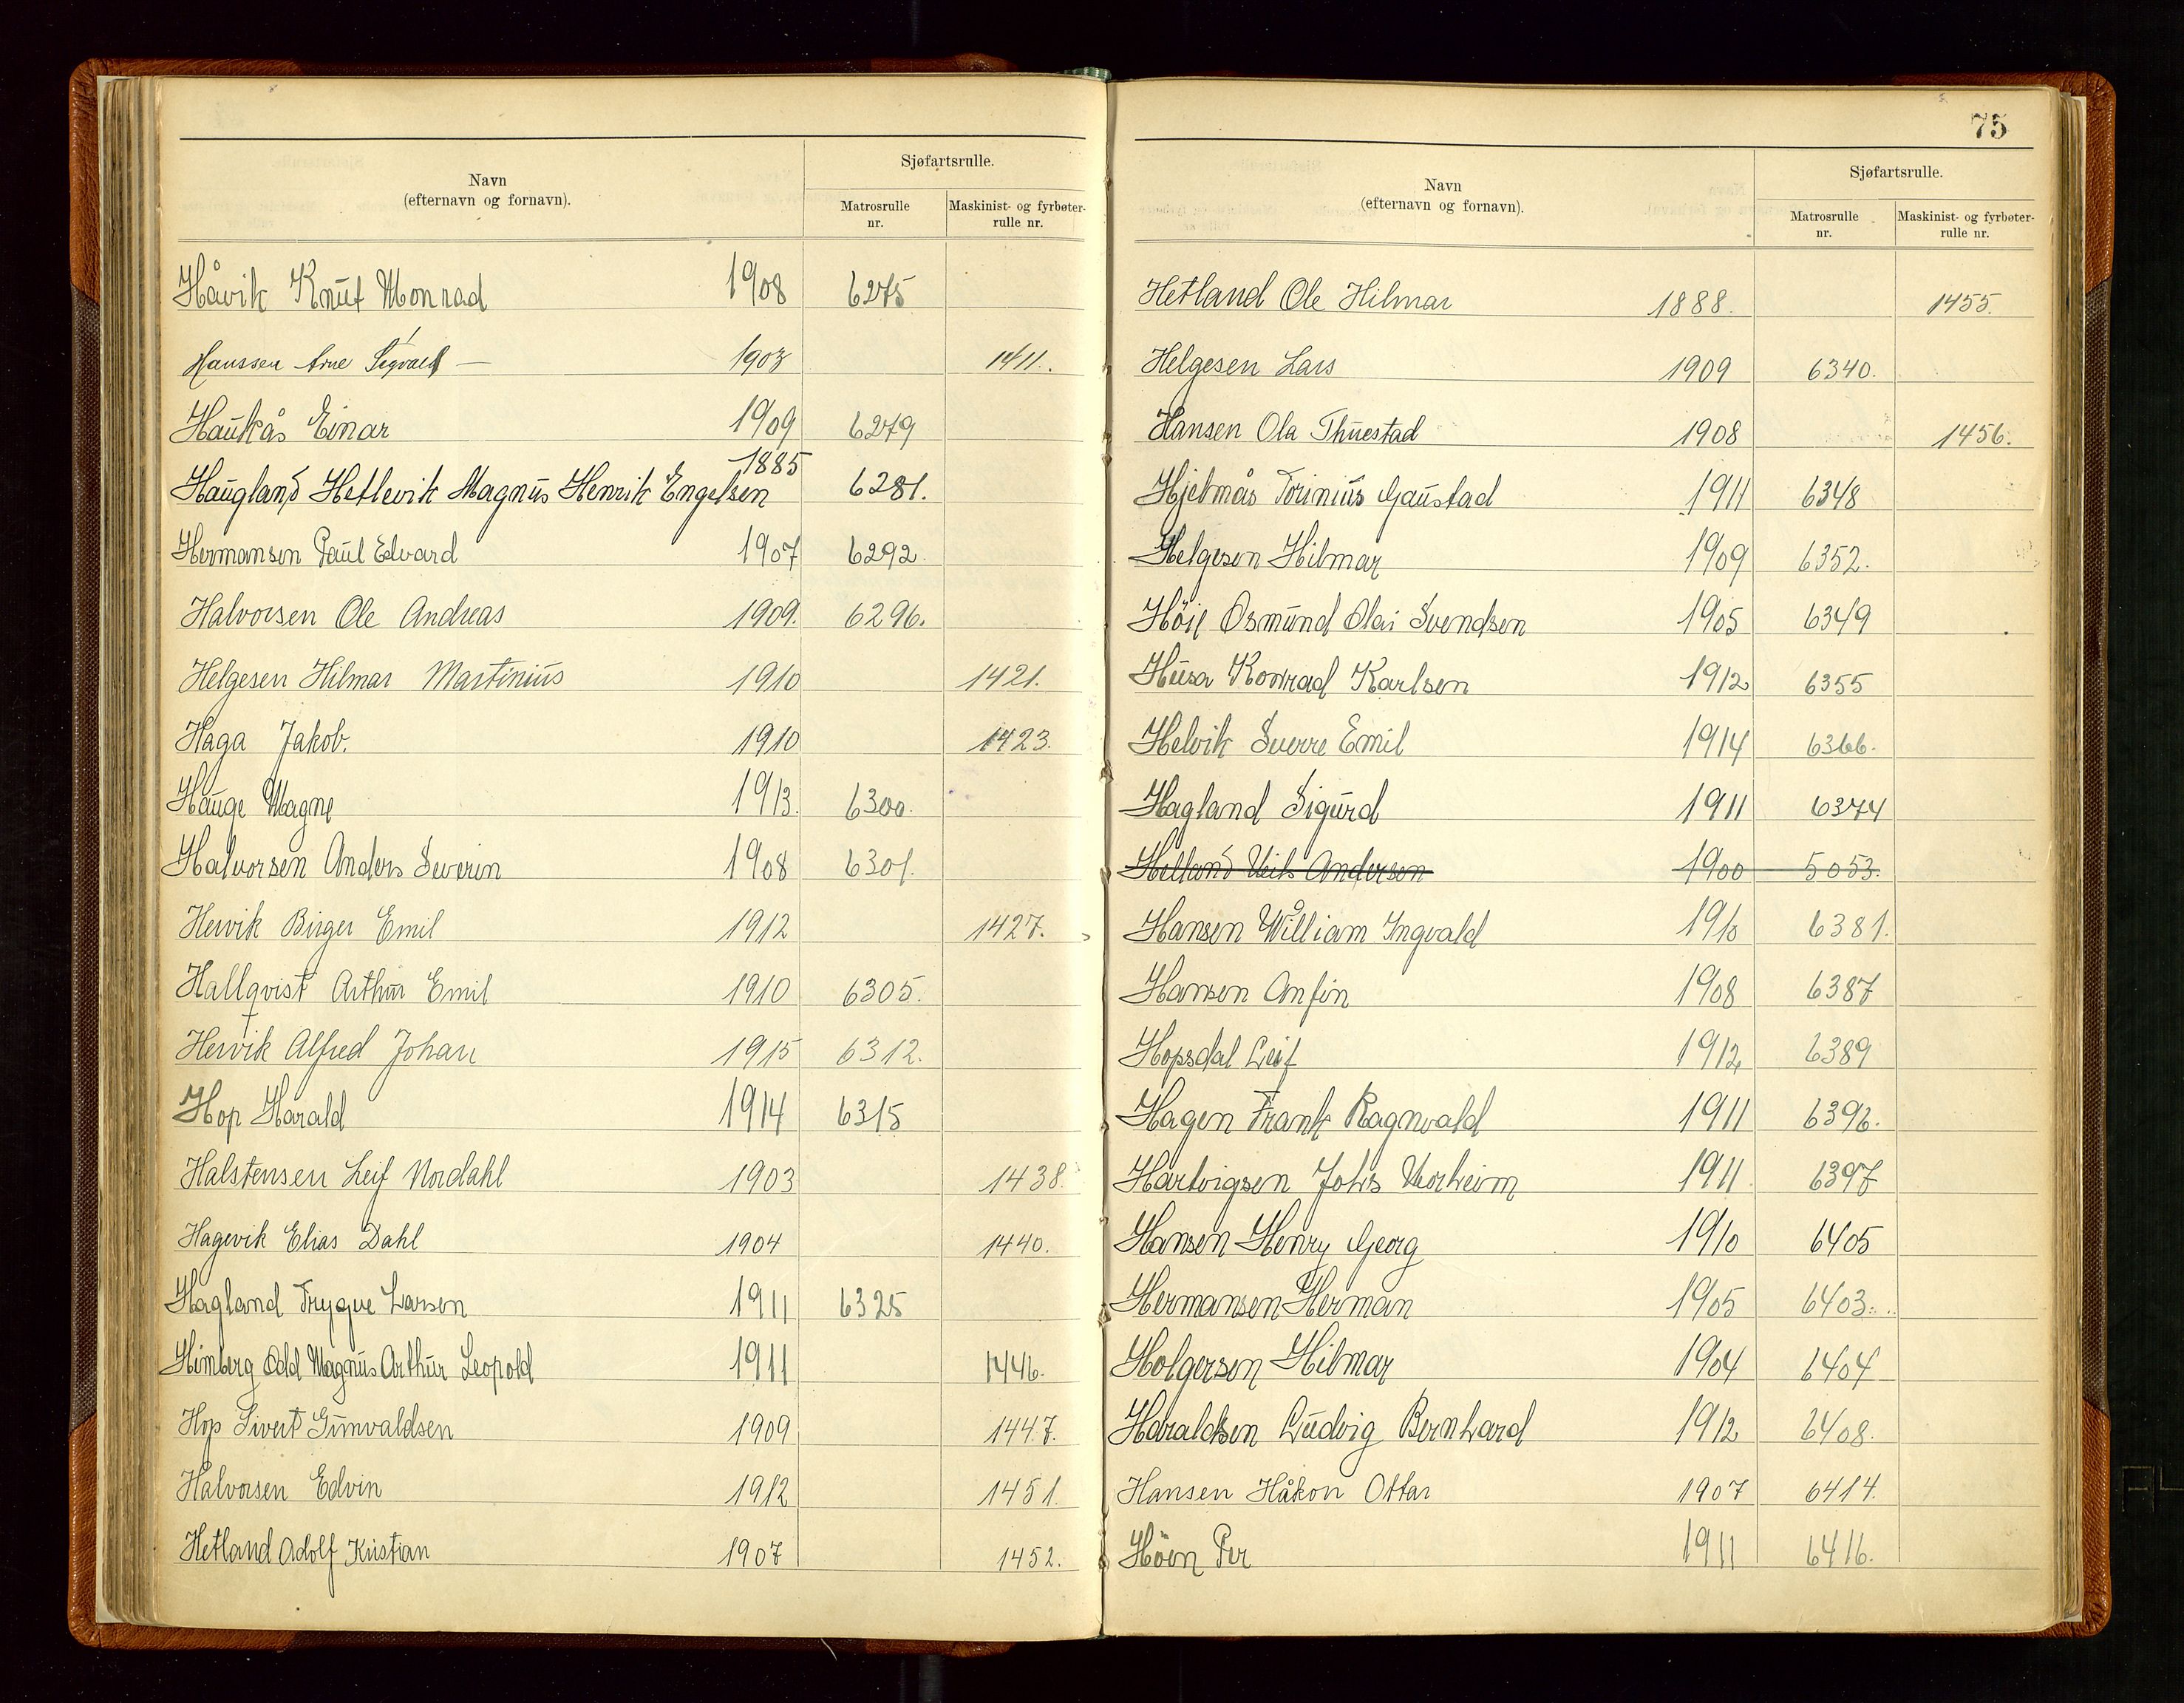 Navn
(efternavn og fornavn).
Sjøfartsrulle.
Matrosrulle nr.
Maskinist- og fyrbøter-rulle nr.
Håvik Knut Monrad 1908 6275
Hanssen Arne Sigvald — 1903 1411.
Haukås Einar 1909 6279
Haugland Hetlevik Magnus Henrik Engelsen 1885 6281.
Hermansen Paul Edvard 1907 6292.
Halvorsen Ole Andreas 1909. 6296.
Helgesen Hilmar Martinius 1910 1421.
Haga Jakob. 1910 1423.
Hauge Magne 1913. 6300.
Halvorsen Anders Severin 1908 6301.
Hervik Birger Emil 1912 1427.
Hallqvist Arthur Emil 1910 6305.
Hervik Alfred Johan 1915 6312.
Hop Harald 1914 6315
Halstensen Leif Nordahl 1903 1438.
Hagevik Elias Dahl 1904 1440.
Hagland Trygve Larsen 1911 6325
Himberg Odd Magnus Arthur Leopold 1911 1446.
Hop Sivert Gunvaldsen 1909 1447.
Halvorsen Edvin 1912 1451.
Hetland Adolf Kristian 1907 1452.
75
Navn
(efternavn og fornavn).
Sjøfartsrulle.
Matrosrulle nr.
Maskinist- og fyrbøter-rulle nr.
Hetland Ole Hilmar 1888. 1455.
Helgesen Lars 1909 6340.
Hansen Ola Thuestad 1908 1456.
Hjelmås Torinius Gaustad 1911 6348
Helgesen Hilmar 1909 6352.
Höie Osmund Olai Svendsen 1905 6349
Husa Konrad Karlsen 1912 6355
Helvik Sverre Emil 1914 6366.
Hagland Sigurd 1911 6374
Helland Andersen 1900 5053.
Hansen William Ingvald 1910 6381.
Hansen Anfin 1908 6387
Hopsdal Leif 1912 6389
Hagen Frank Ragnvald 1911 6396.
Hartvigsen Johs Norheim 1911 6397
Hansen Henry Georg 1910 6405
Hermansen Herman 1905 6403.
Holgersen Hilmar 1904 6404
Haraldsen Ludvig Bernhard 1912 6408.
Hansen Håkon Ottar 1907 6414.
Höen Per 1911 6416.